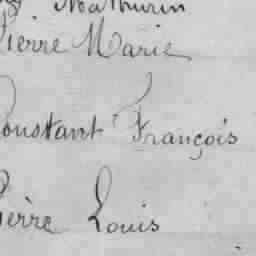 Mathurin
Pierre Marie
Constant François
Pierre Louis